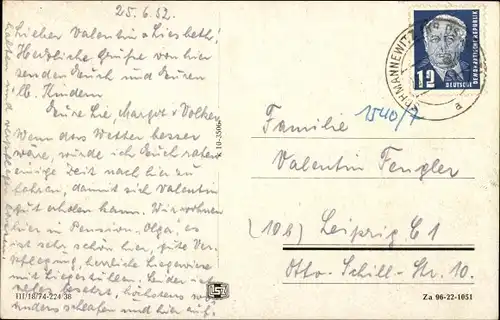 25.6.52.
Lieber Valentin & Liesbeth!
Herzliche Grüße von hier
senden Euch und Euren
lb. Kindern
Eure Lie Margot & Volker
Wenn das Wetter besser
wäre, würde ich Euch raten
einige Zeit nach hier zu
fahren, damit sich Valentin
gut erholen kann. Wir wohnen
hier in Pension Olga, es
ist sehr schön hier, gute Ver-
pflegung, herrliche Liegewiese
mit Liegestühlen. Leider ist
sehr besetzt, höchstens
anders schlafen und hier auf.
halten und
III/18/74-224 38
10-3506
DEUTSCHE
DEMOKRATISCHE REPUBLIK
12
a
1540/7
Familie
Valentin Fengler
(10b) Leipzig C 1
Otto-Schill-Str. 10.
Za 96-22-1051